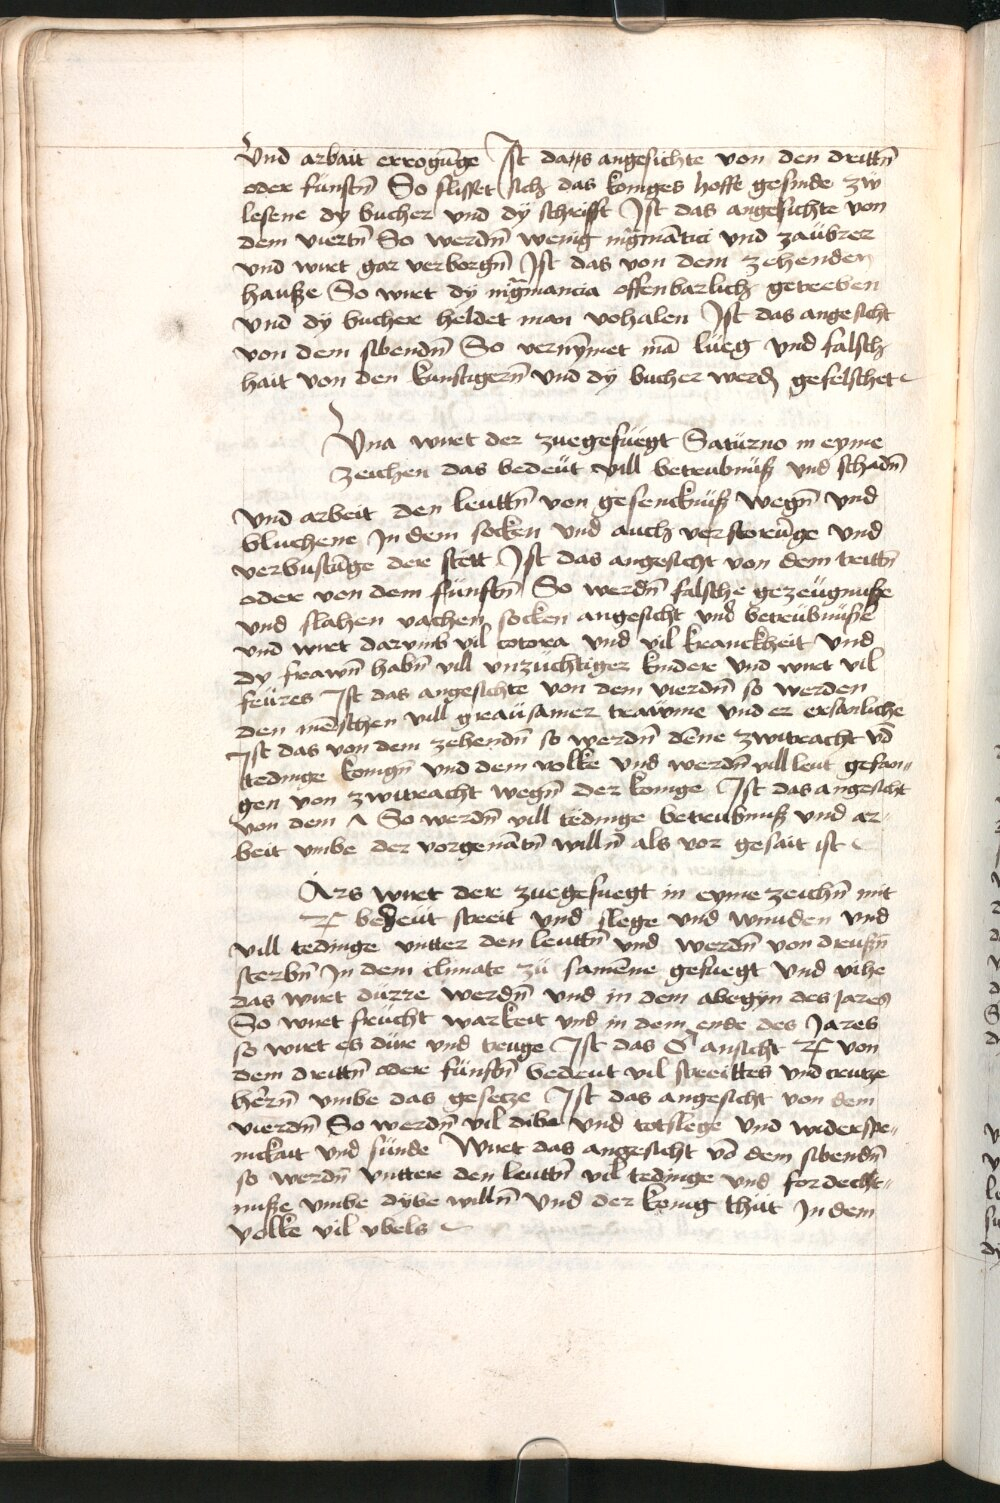 Vnd arbait erregu̅ge Ist das angesichte von den dritt̅n
oder fünft̅n So flisset sich das koniges hoffe gesinde zw
lesene dy bucher vnd dÿ schrifft Ist das angesichte von
dem viert̅n So werd̅n wenig nig̅ma̅tici vnd zaübrer
vnd wirt gar verborg̅n Ist das von dem zehenden
hauße So wirt dÿ nig̅mancia offenbarlich getreben
vnd dÿ buchere heldet man vohalen Ist das angesicht
von dem sibend̅n So vernÿmet ma̅ lüeg vnd falsch
hait von den kunstiger̅n vnd dÿ bucher werd gefelschet
Vna wirt der zuegefüegt Satürno in eyme
zeichen das bedeüt vill betrubnüß vnd schad̅n
vnd arbeit den leutt̅n von gefencknüß weg̅n vnd
fluchene In dem socken vnd auch verstoru̅ge vnd
verbustu̅ge der stett Ist das angesicht von dem tritt̅n
oder von dem fünft̅n So werd̅n falsche gezeügnuße
vnd slahen vachen socken angesicht vnd betrübnüße
vnd wirt darumb vil totora vnd vil kranckheit vnd
dy frawn̅ hab̅n vill vnzüchtiger kindere vnd wirt vil
feüres Ist das angesichte von dem vierd̅n so werden
den me̅schen vill graüsamer traẅme vnd er
Ist das von dem zehend̅n so werd̅n de̅ne zwitracht vo̅
tedinge konig̅n vnd dem volke vnd werd̅n vill leut gefan„
gen von zwitracht weg̅n der konige Ist das angesicht
von dem ʌ So werd̅n vill tëdinge betrubnuß vnd ar
beit vmbe der vorgena̅t̅n will̅n als vor gesait ist
Ars wirt dere zuegefuegt in eyme zeich̅n mit
♃ bedeüt streit vnd slege vnd wunden vnd
vill tedinge vntter den leutt̅n vnd werd̅n von dreuß̅n
sterb̅n In dem climate zü same̅ne gefuegt vnd vihe
das wirt dürre werd̅n vnd in dem abegÿn des Jares
So wirt frücht warkeit vnd in dem ende des Jares
so wirt es düre vnd treuge Ist das S ansicht ♃ von
dem dritt̅n odere fünft̅n bedeut vil streittes vnd trutze
her̅n vmbe das gesetze Ist das angesicht von dem
vierd̅n So werd̅n vil dibe vnd totslege vnd widerspe„
nickait vnd sünde Wirt das angesicht vo̅ dem sibend̅n
so werd̅n vnttere den leutt̅n vil tedinge vnd fordecht„
nuße vmbe dÿbe will̅n vnd der konig thüt In dem
volke vil vbels